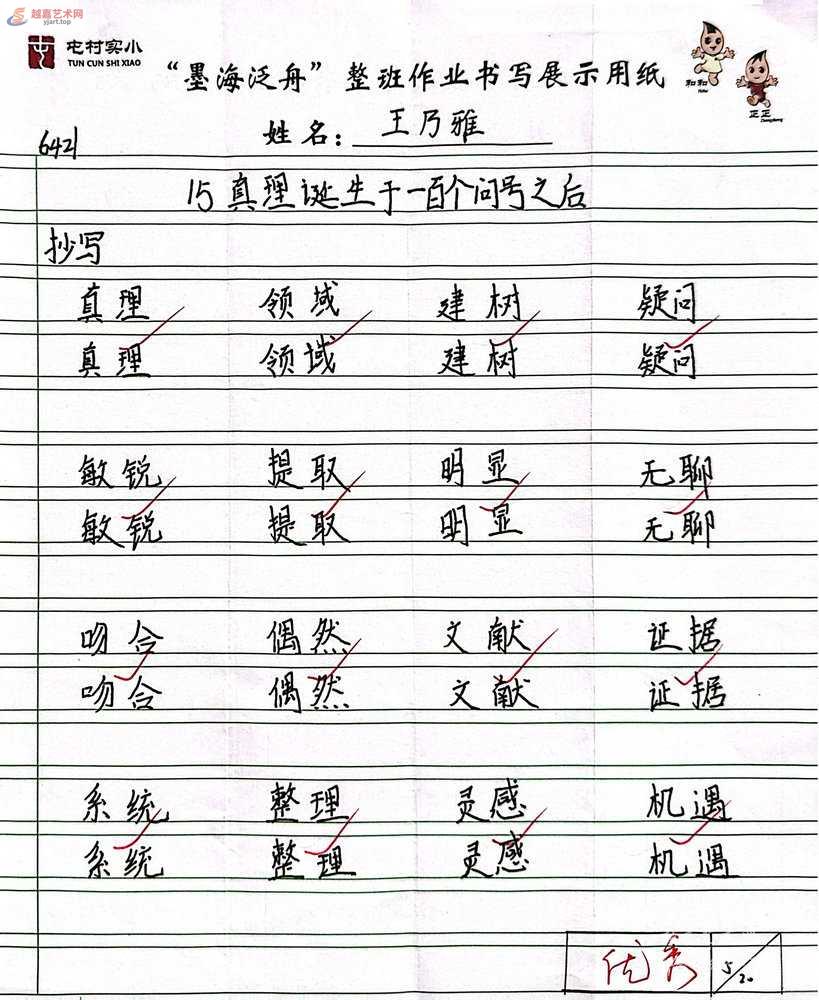 越嘉艺术网
yjart.top
屯村实小
TUN CUN SHI XIAO
“墨海泛舟”整班作业书写展示用纸
和和
Hehe
正正
Zhengzheng
姓名：王乃雅
6421
15 真理诞生于一百个问号之后
抄写
真理 领域 建树 疑问
真理 领域 建树 疑问
敏锐 提取 明显 无聊
敏锐 提取 明显 无聊
吻合 偶然 文献 证据
吻合 偶然 文献 证据
系统 整理 灵感 机遇
系统 整理 灵感 机遇
优秀 5/20